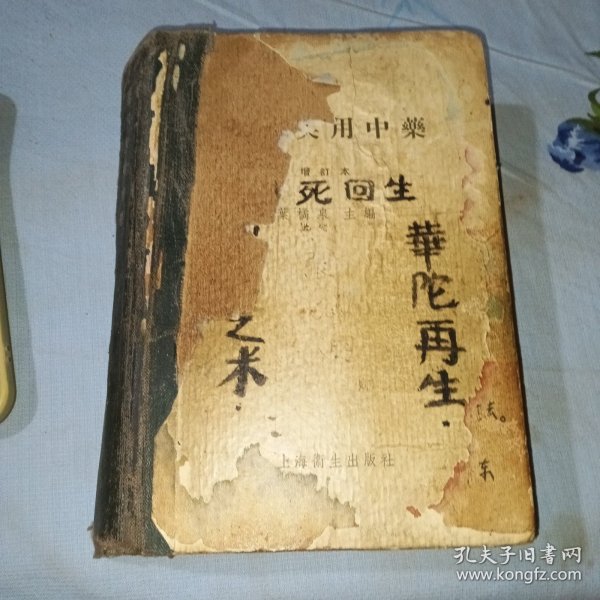 用中藥
增訂本
死回生
葉橘泉 主編
華陀再生
之术
上海衛生出版社
东
孔夫子旧书网
www.kongfz.com